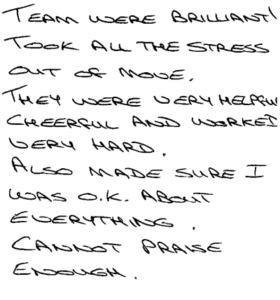 TEAM WERE BRILLIANT!
TOOK ALL THE STRESS
OUT OF MOVE.
THEY WERE VERY HELPFUL
CHEERFUL AND WORKED
VERY HARD.
ALSO MADE SURE I
WAS O.K. ABOUT
EVERYTHING.
CANNOT PRAISE
ENOUGH.